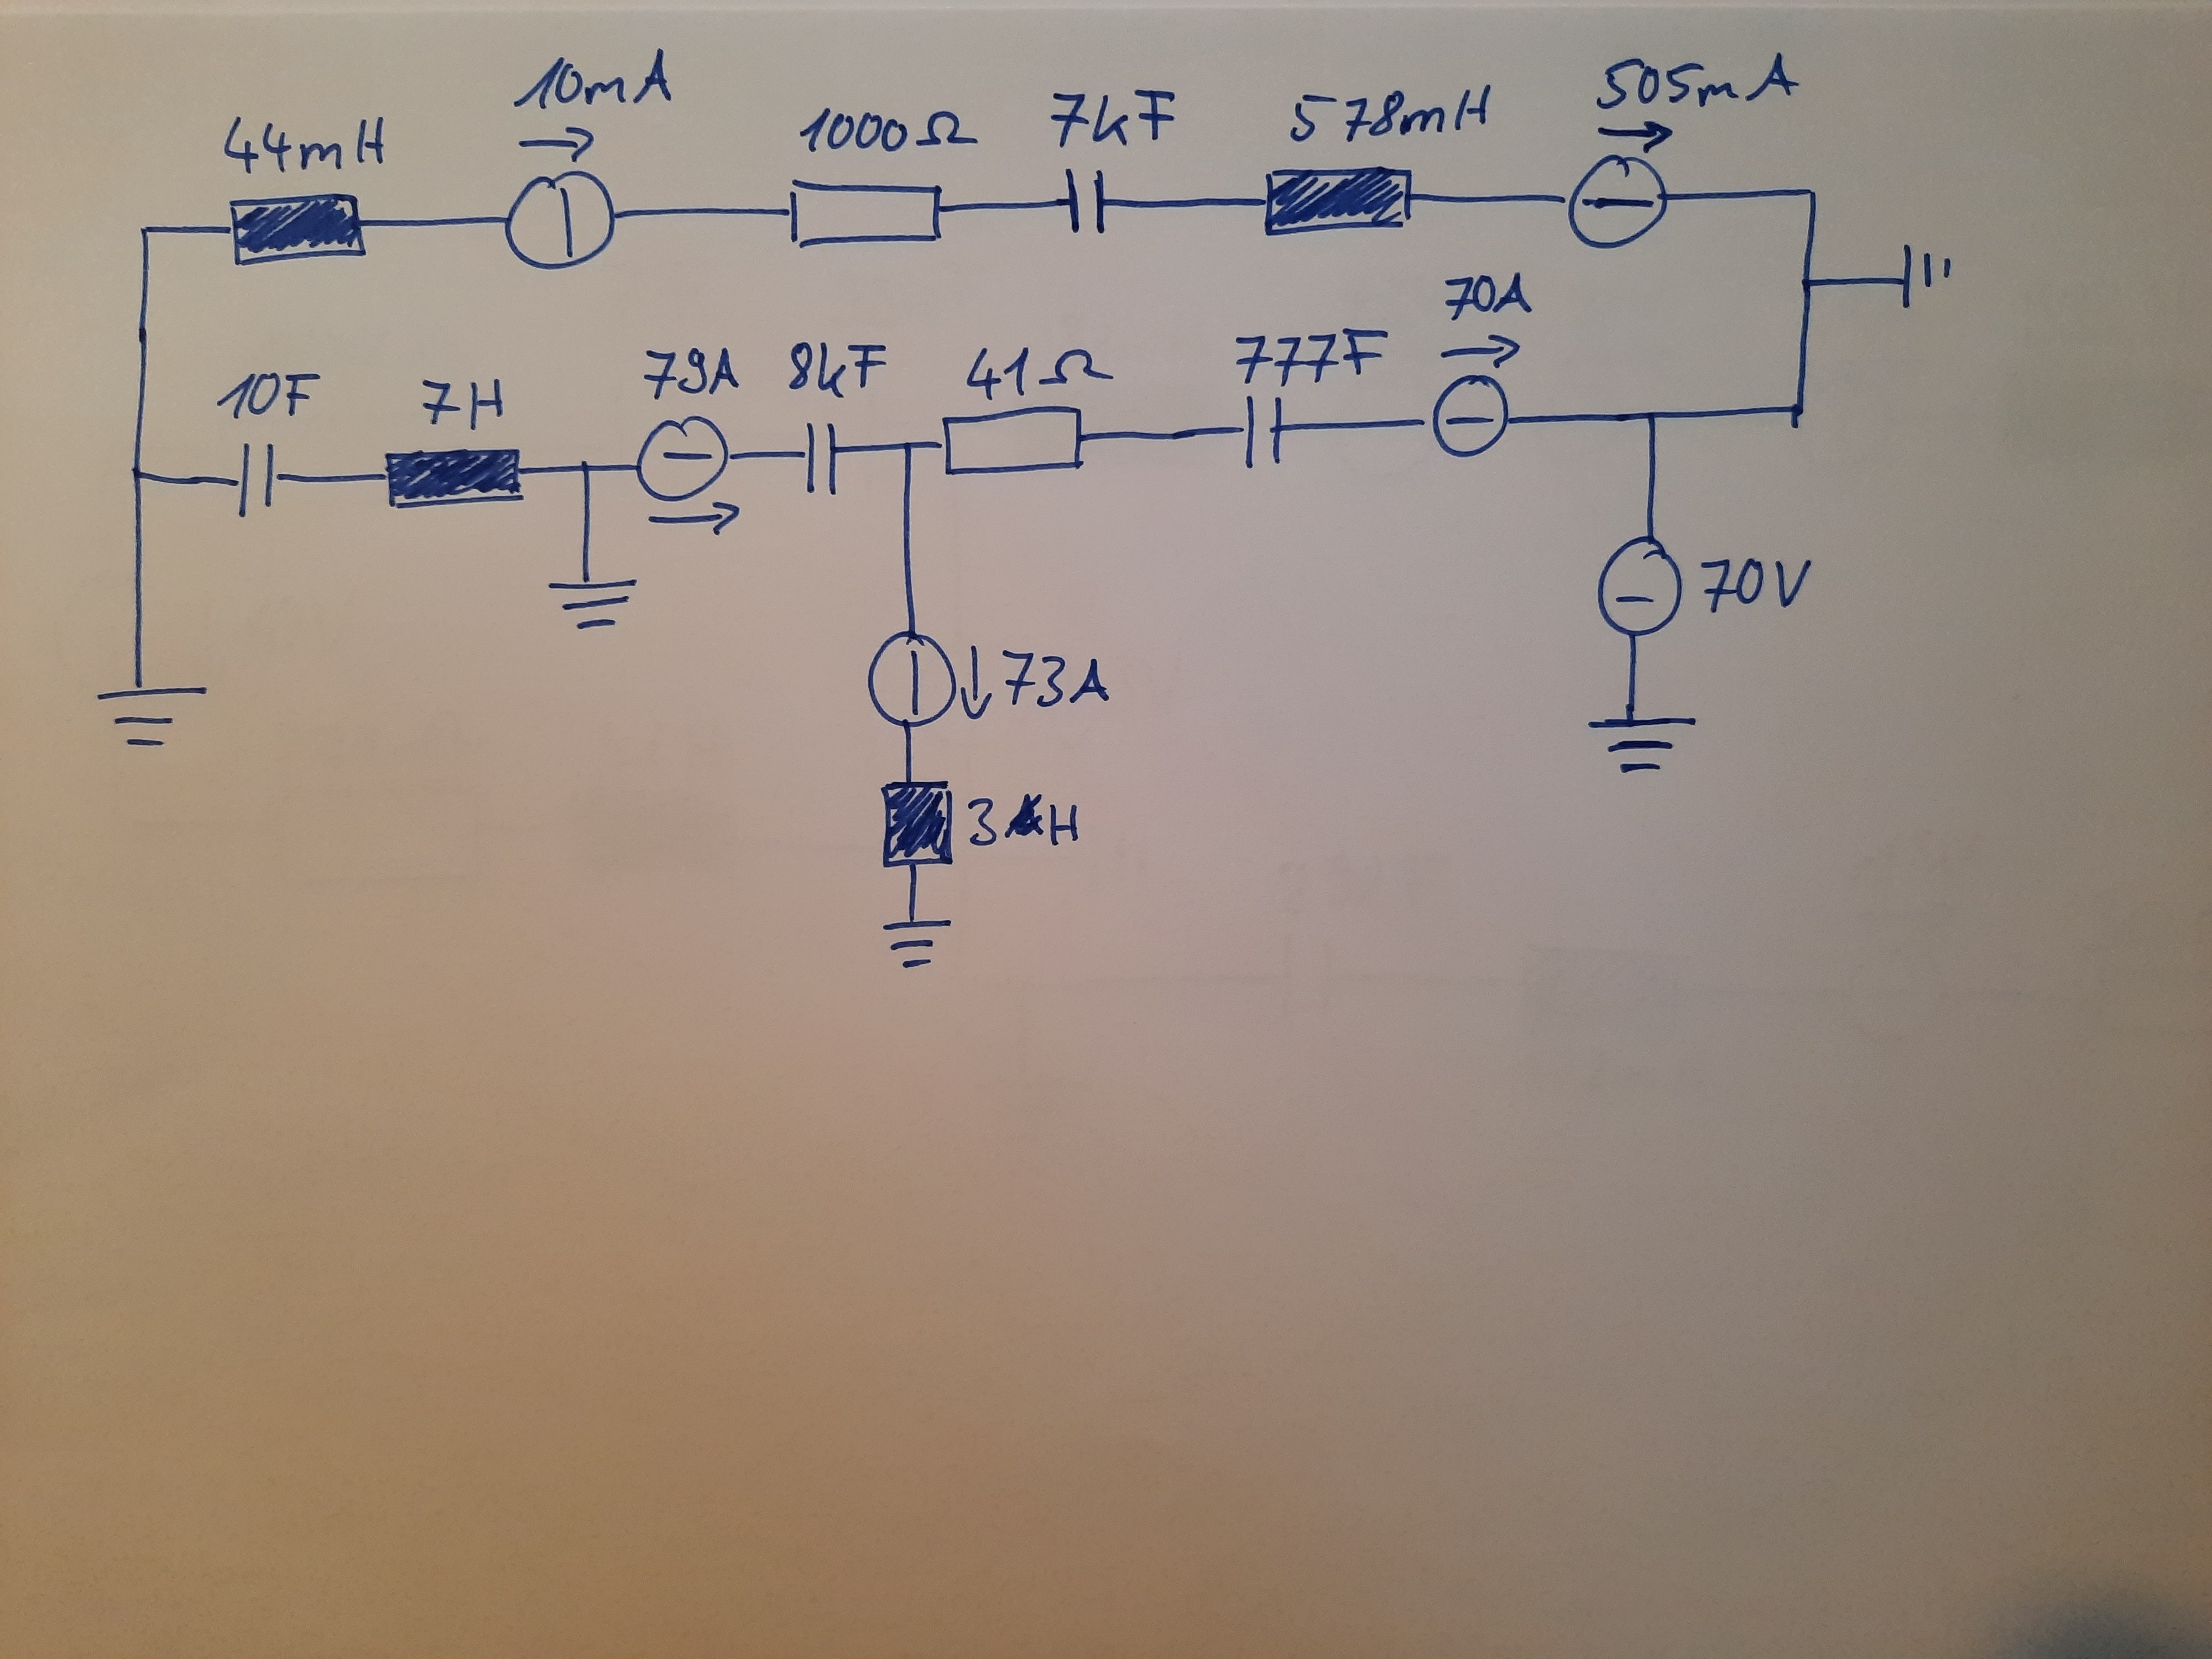 44mH
10mA
1000Ω
7kF
578mH
505mA
10F
7H
79A
8kF
41Ω
777F
70A
73A
70V
3kH